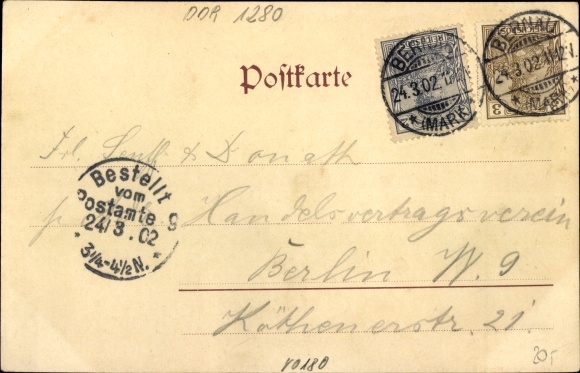 DDR 1280
Postkarte
BERNAU
24.3.02.
* (MARK) *
BERNAU
24.3.02.11-12V.
* (MARK) *
3
Frl. & Donath
Bestellt
vom
Postamte 9
24/3.02
* 3¼-4½N. *
Handelsvertragsverein
Berlin W. 9
Köthenerstr. 21.
V0180
20,-